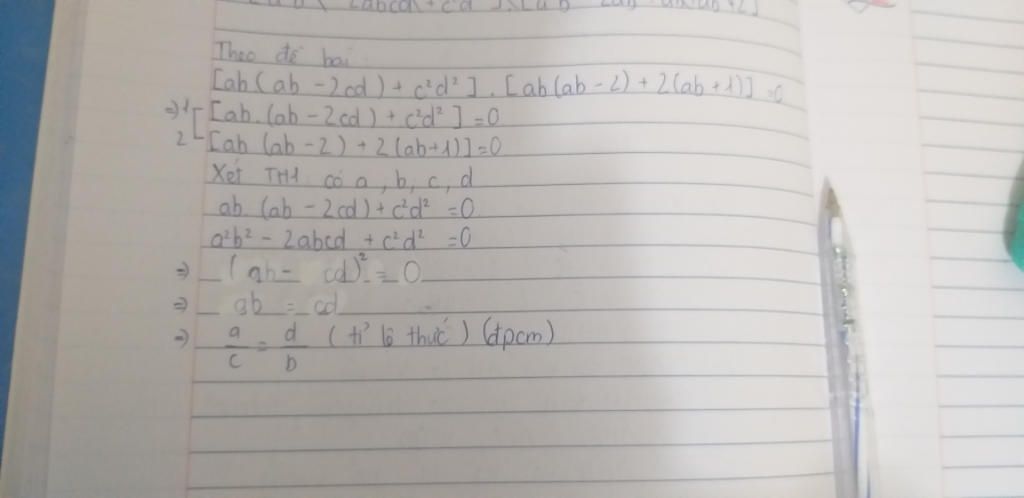 Theo đề bài
[ab(ab - 2cd) + c²d²] . [ab(ab - 2) + 2(ab + 1)] = 0
=> 1 [ [ab.(ab - 2cd) + c²d²] = 0
2 [ab (ab - 2) + 2(ab+1)] = 0
Xét TH1 có a, b, c, d
ab.(ab - 2cd) + c²d² = 0
a²b² - 2abcd + c²d² = 0
=> (ab - cd)² = 0
=> ab = cd
=> a/c = d/b (tỉ lệ thức) (đpcm)